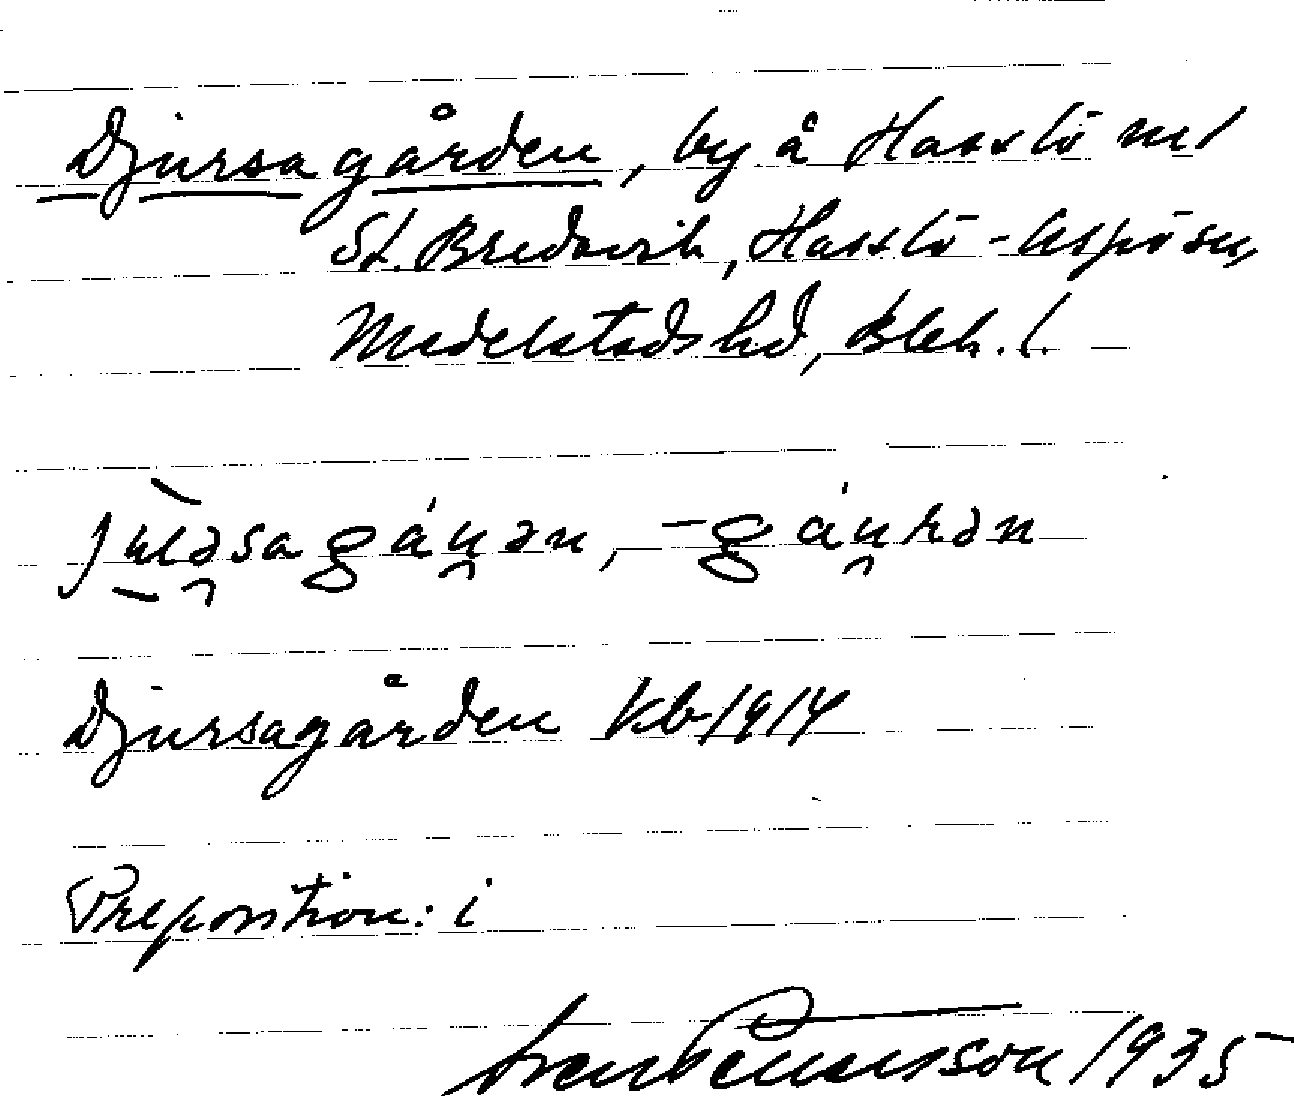 Djursagården, by å Hasslö nr 1
St. Bredavik, Hasslö-Aspö sn,
Medelstads hd, Blek. l.
Djursagården Kb 1914
Preposition: i
1935